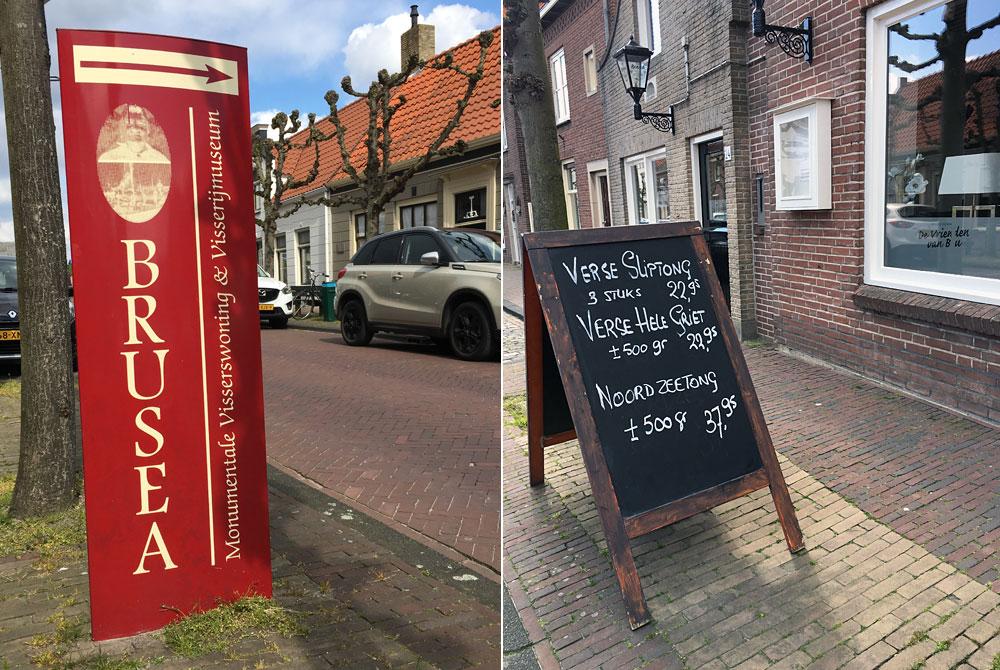 BRUSEA
Monumentale Visserswoning & Visserijmuseum
VERSE SLIPTONG
3 STUKS 22,95
VERSE HELE GRIET
± 500 gr 22,95
NOORDZEETONG
± 500 gr 37,95
De Vrienden
van B u